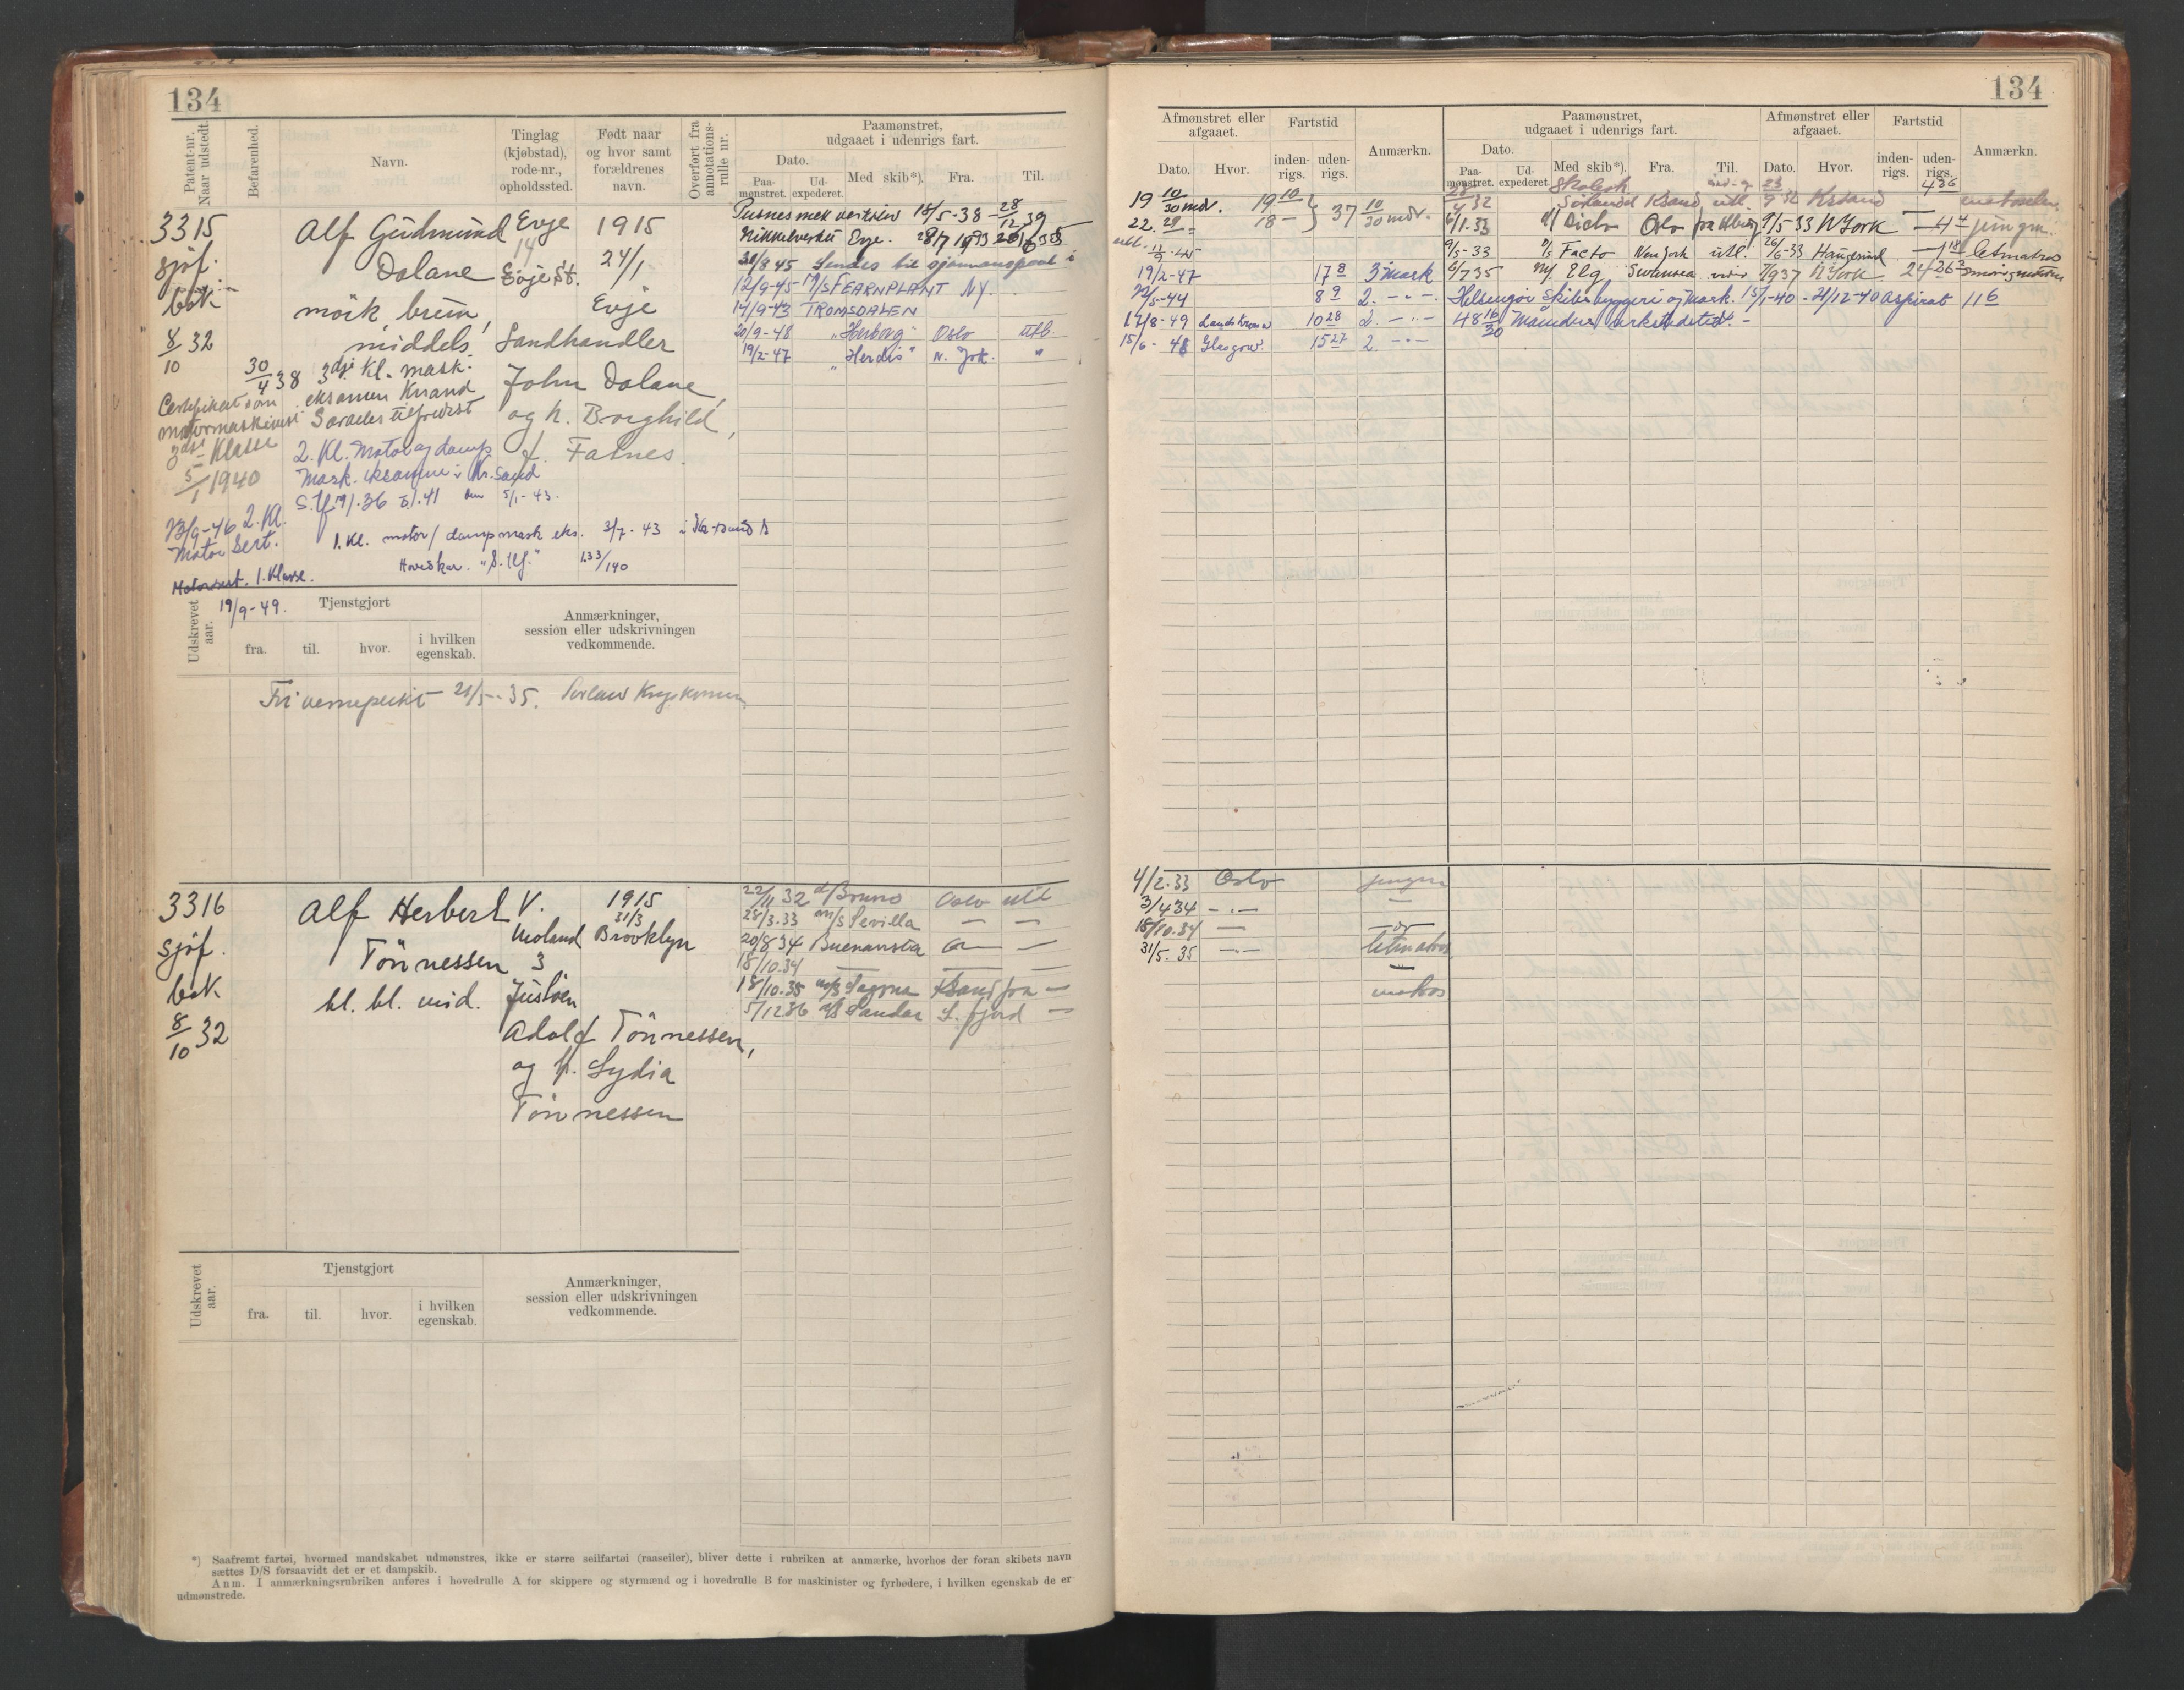 134
Patent-nr. Naar udstedt.
Befarenhed.
Navn.
Tinglag (kjøbstad), rode-nr., opholdssted.
Født naar og hvor samt forældrenes navn.
Overført fra annotations-rulle nr.
Paamønstret, udgaaet i udenrigs fart.
Dato.
Paa-mønstret.
Ud-expederet.
Med skib*).
Fra.
Til.
3315
sjöf.
bok
8/10 32
Alf Gudmund
Dalane
mörk, brun,
middels
Evje
14
Evje St.
1915
24/1
Evje
Landhandler
John Dalane,
og h. Borghild,
f. Fatnes.
30/4 38 3dje Kl. mask.
eksamen Krsand
Særdeles tilfredsst
Certifikat som
motormaskinist
3dje Klasse
5/1 1940
2. Kl. Motor og damp
Mask. eksamen i Kr.sand
5/1-43.
13/9-46 2. Kl.
Motor Sert.
1. Kl. motor/dampmask eks. 3/7-43 i Kr.sand S
Hovedkar. "S.tlf." 133/140
Motorsert. 1. Klasse.
19/9-49.
Pusnes mek verksted 18/5-38 - 28/12 39
Nikkelverket Evje.
31/8 45 Sendes til sjømannspool i
12/9-45 M/S FEARNPLANT NY.
14/9-43 TROMSDALEN
20/9-48 "Herborg" Oslo utb.
19/2-47 "Herdis" N. York. "
Udskrevet aar.
Tjenstgjort
fra.
til.
hvor.
i hvilken egenskab.
Anmærkninger, session eller udskrivningen vedkommende.
Fri vernepligt 21/5-35.
3316
sjöf.
bok
8/10 32
Alf Herbert
Tönnessen
bl. bl. mid.
V.
Moland
3
Justöen
1915
31/3
Brooklyn
Adolf Tönnessen,
og h. Lydia
Tönnessen
22/11 32 d/ Bruno Oslo utl
28/3.33 m/s Sevilla — —
20/8 34 Buenavista — —
18/10.34 — — —
18/10.35 m/s Sagona —
5/12 36 Sandar S. fjord —
Udskrevet aar.
Tjenstgjort
fra.
til.
hvor.
i hvilken egenskab.
Anmærkninger, session eller udskrivningen vedkommende.
*) Saafremt fartøi, hvormed mandskabet udmønstres, ikke er større seilfartøi (raaseiler), bliver dette i rubriken at anmærke, hvorhos der foran skibets navn
sættes D/S forsaavidt det er et dampskib.
Anm. I anmærkningsrubriken anføres i hovedrulle A for skippere og styrmænd og i hovedrulle B for maskinister og fyrbødere, i hvilken egenskab de er
udmønstrede.
134
Afmønstret eller afgaaet.
Dato.
Hvor.
Fartstid
inden-rigs.
uden-rigs.
Anmærkn.
Paamønstret, udgaaet i udenrigs fart.
Dato.
Paa-mønstret.
Ud-expederet.
Med skib*).
Fra.
Til.
Afmønstret eller afgaaet.
Dato.
Hvor.
Fartstid
inden-rigs.
uden-rigs.
Anmærkn.
19 10/30 mdr. 19 10 } 37 10/30 mdr.
22. 29 18 —
19/2-47 17 8 3 mask
12/5-44 8 9 2. -"-
17/8-49 Landskrona 10 28 2. -"-
15/6-48 Glasgow. 15 27 2. -"-
28/4 32 Skolesk. Sörlandet Ksand utl. 23/9 32 Krsand — 4 26
6/1.33 Dicto Oslo 9/5-33 N York — 4 4 jungm.
9/5-33 Facto New York utl. 26/6-33 Haugesund — 1 18 letmatros
6/7 35 M/ Elg Swansea 7/9 37 N York
Helsingör Skibsbyggeri og Mask. 15/1-40 - 21/12-40 Aspirant 11 6
48 16/30 Måneders verkstedstid. -
4/2.33 Oslo jungm
3/4 34 -"- —
18/10.34 — do
31/5.35 -"- letmatros
matros